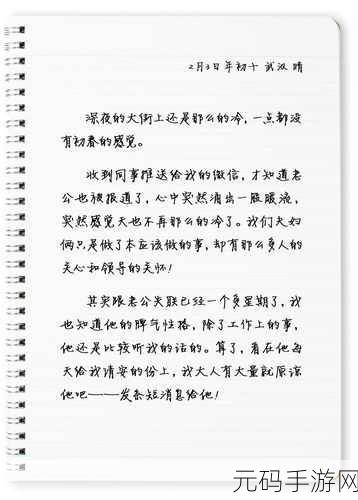 2月3日年初十 武汉 晴
深夜的大街上还是那么的冷，一点都没
有初春的感觉。
收到同事推送给我的微信，才知道老
公也被报道了，心中突然涌出一股暖流，
突然感觉天也不再那么的冷了。我们夫妇
俩只是做了本应该做的事，却有那么多人的
关心和领导的关怀！
其实跟老公失联已经一个多星期了，我
也知道他的脾气性格，除了工作上的事，
他还是比较听我的话的。算了，看在他每
天给我请安的份上，我大人有大量就原谅
他吧——发条短消息给他！
元码手游网